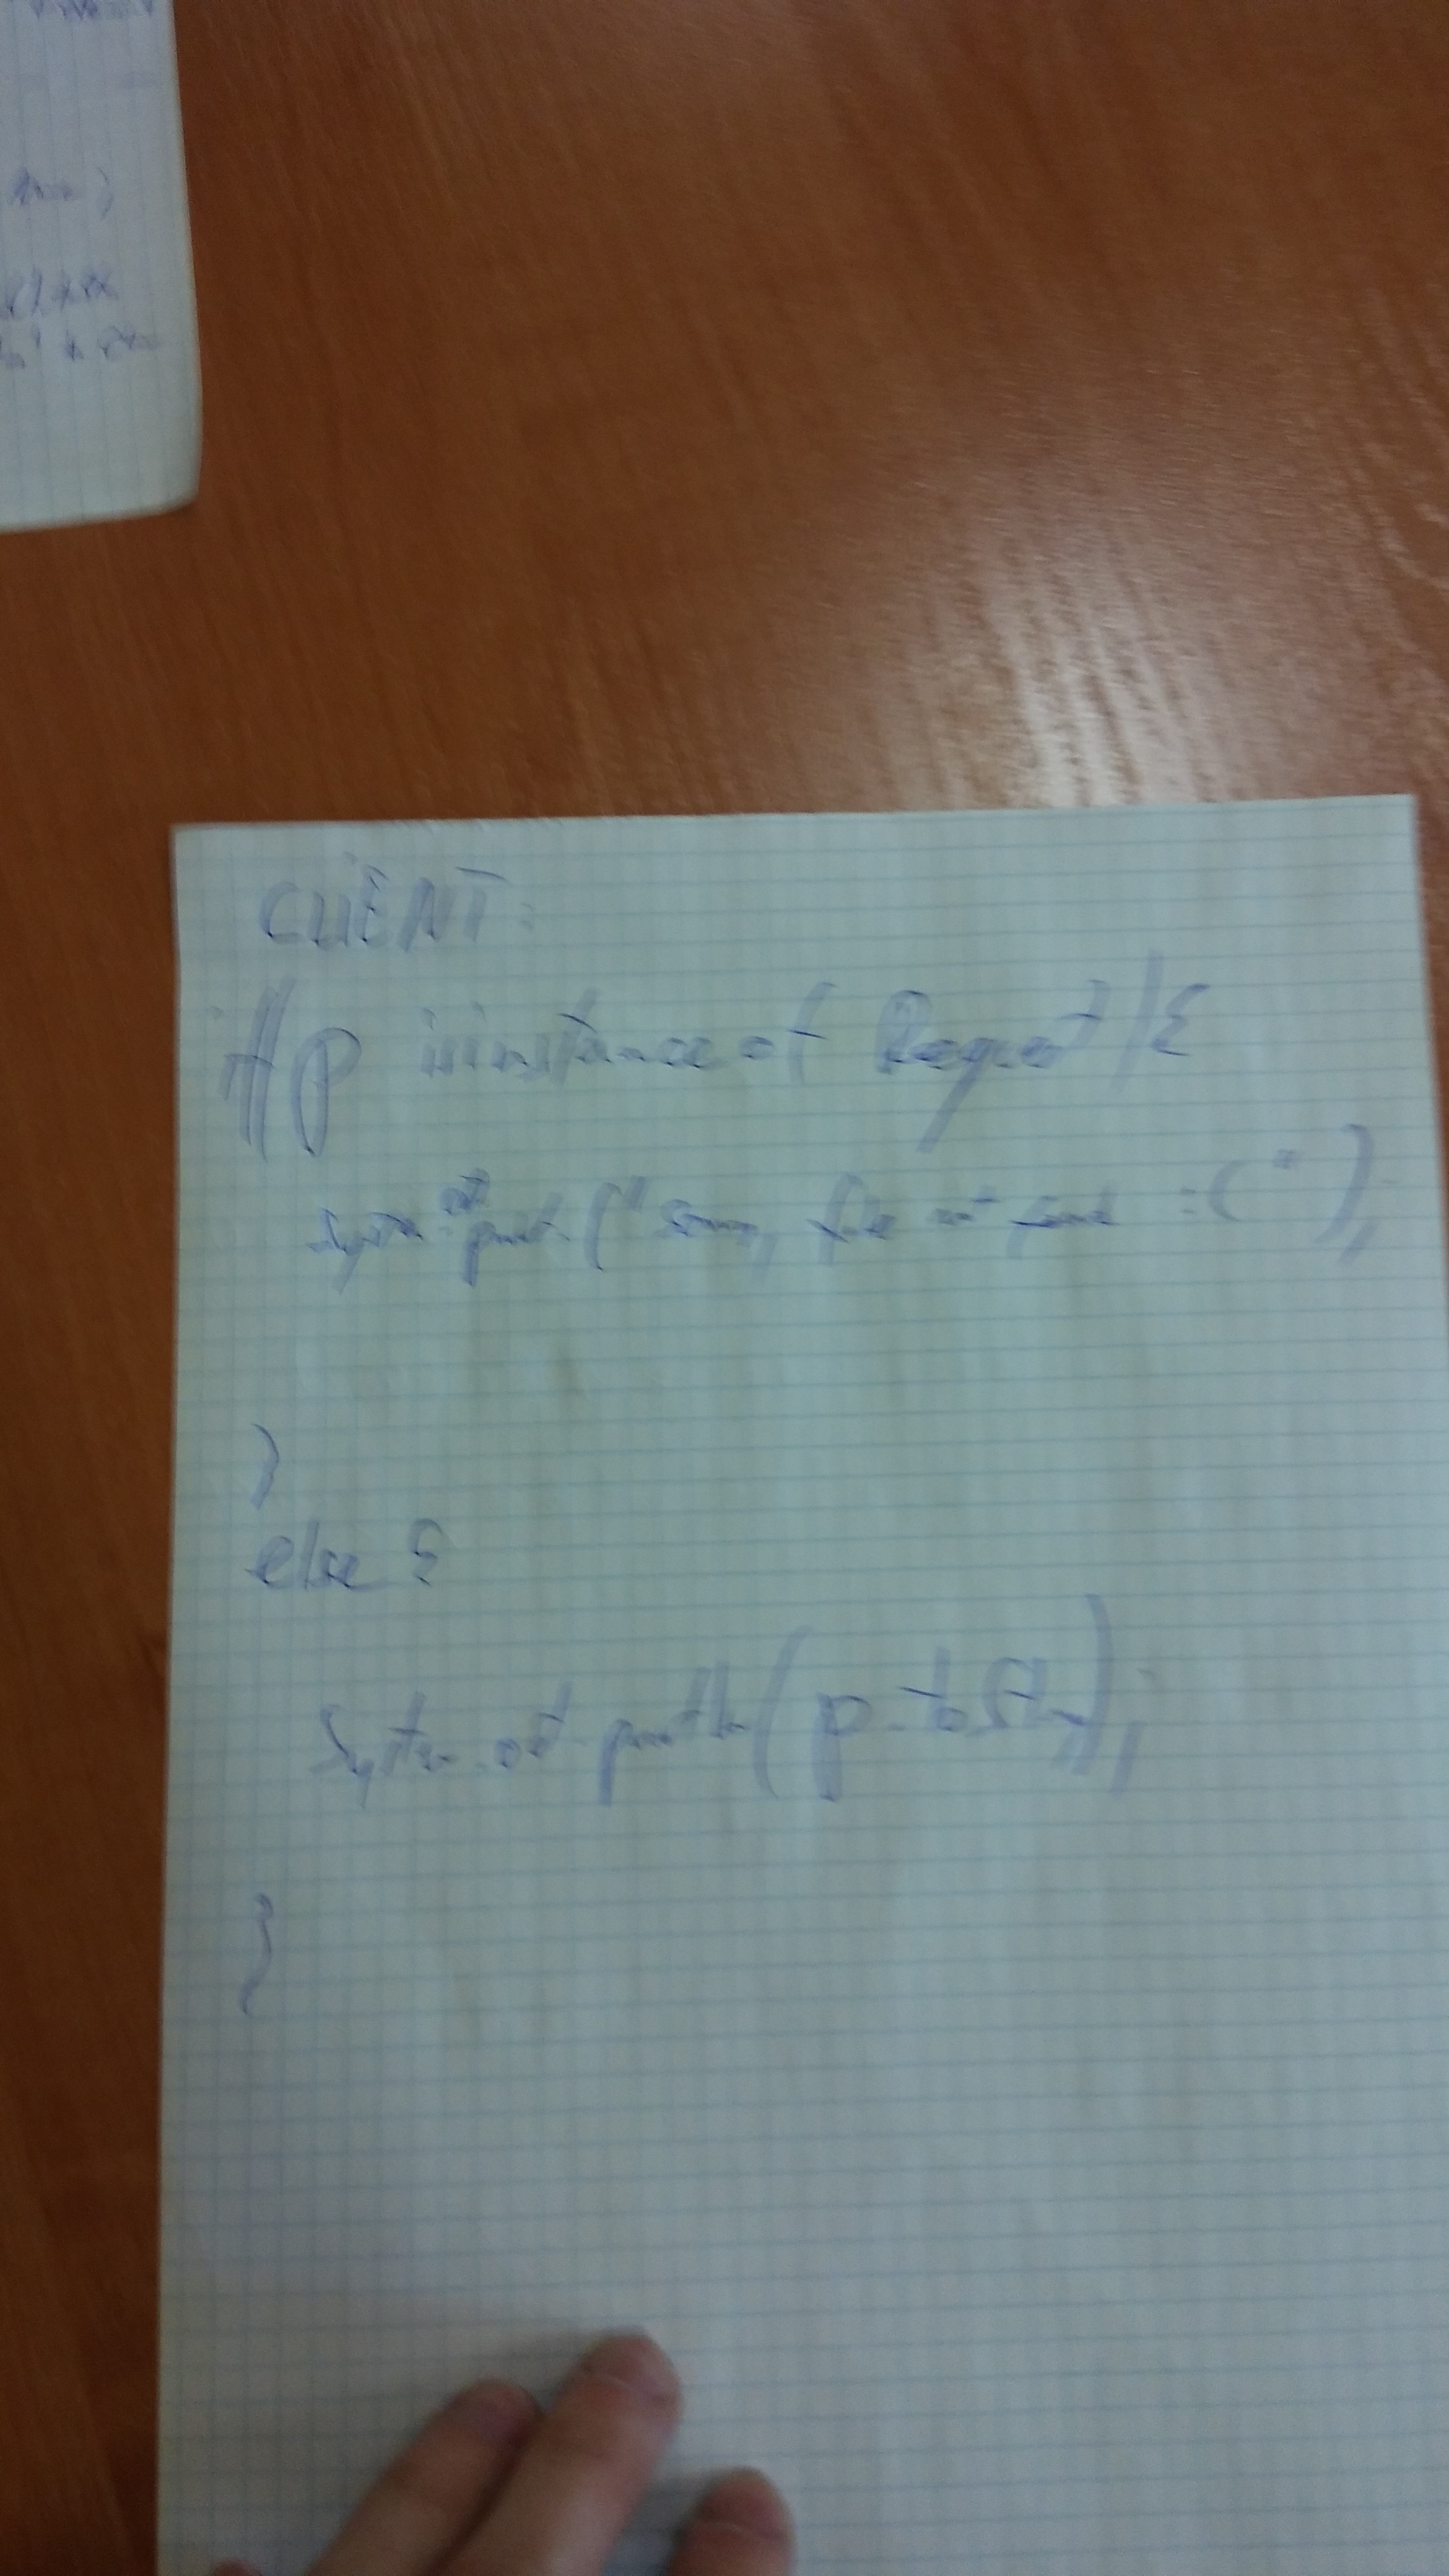 CLIENT:
if(p instance of Request){
System.out.print("Sorry, file not found :(");
}
else {
System.out.println(p.toString);
}